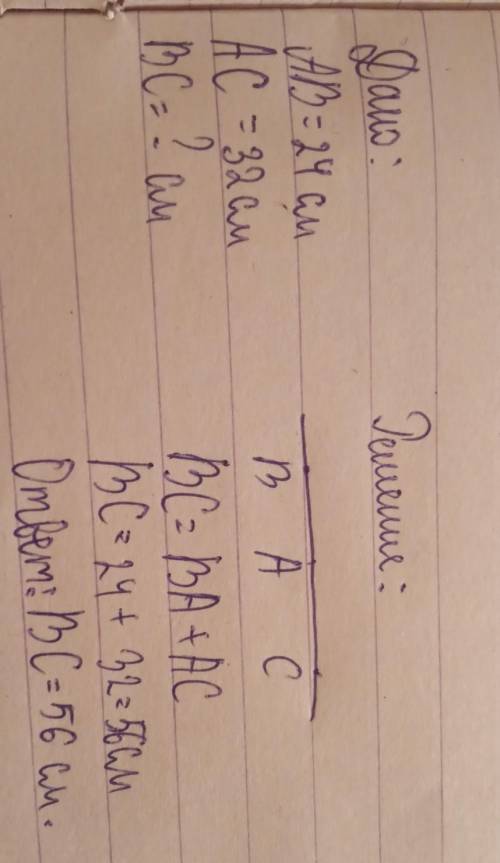 Дано:
AB = 24 см
AC = 32 см
BC = ? см
Решение:
B A C
BC = BA + AC
BC = 24 + 32 = 56 см
Ответ: BC = 56 см.